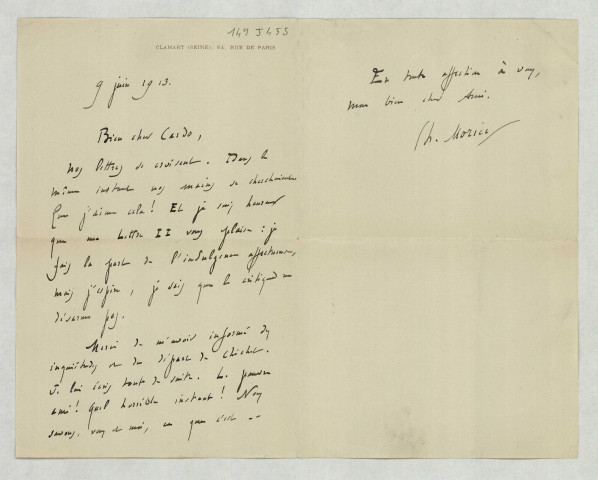 149 J 455
CLAMART (SEINE), 84, RUE DE PARIS
9 juin 1913.
Bien cher Cardo,
Nos lettres se croisent. Dans le
même instant nos mains se cherchaient
Que j'aime cela! Et je suis heureux
que ma lettre II vous plaise : je
fais la part de l'indulgence affectueuse,
mais j'espère, je sais que le critique ne
désarme pas.
Merci de m'avoir informé des
inquiétudes et du départ de
Je lui écris tout de suite. Le pauvre
ami! Quel horrible instant! Nous
savons, vous et moi, ce que c'est --
En toute affection à vous,
mon bien cher Ami.
Ch. Morice